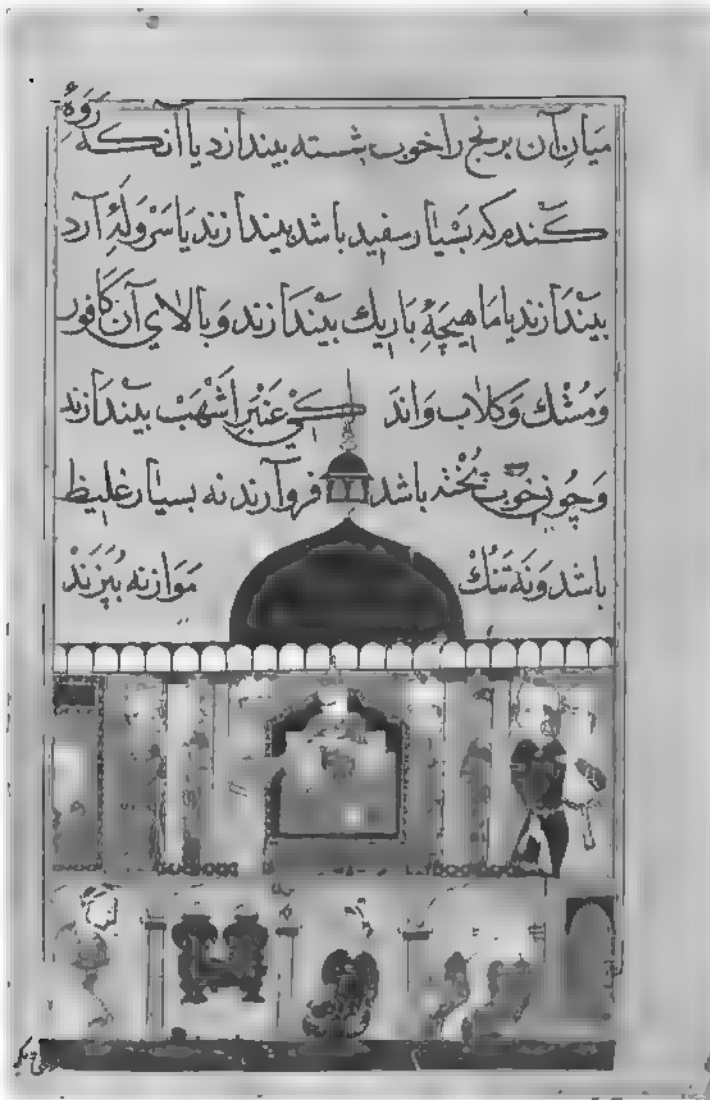 میان آن برنج را خوب شسته بیندازد یا آنکه رَوَهٔ
کندم که بسیار سفید باشد بیندازند یا سَرْوَلَهٔ آرد
بیندازند یا ماهیچهٔ باریک بیندازند و بالای آن کافور
و مشک و کلاب و اندکی عنبر اشهب بیندازند
و چون خوب پخته باشد فرو آرند نه بسیار غلیظ
باشد و نه تنک موازنه بپزند